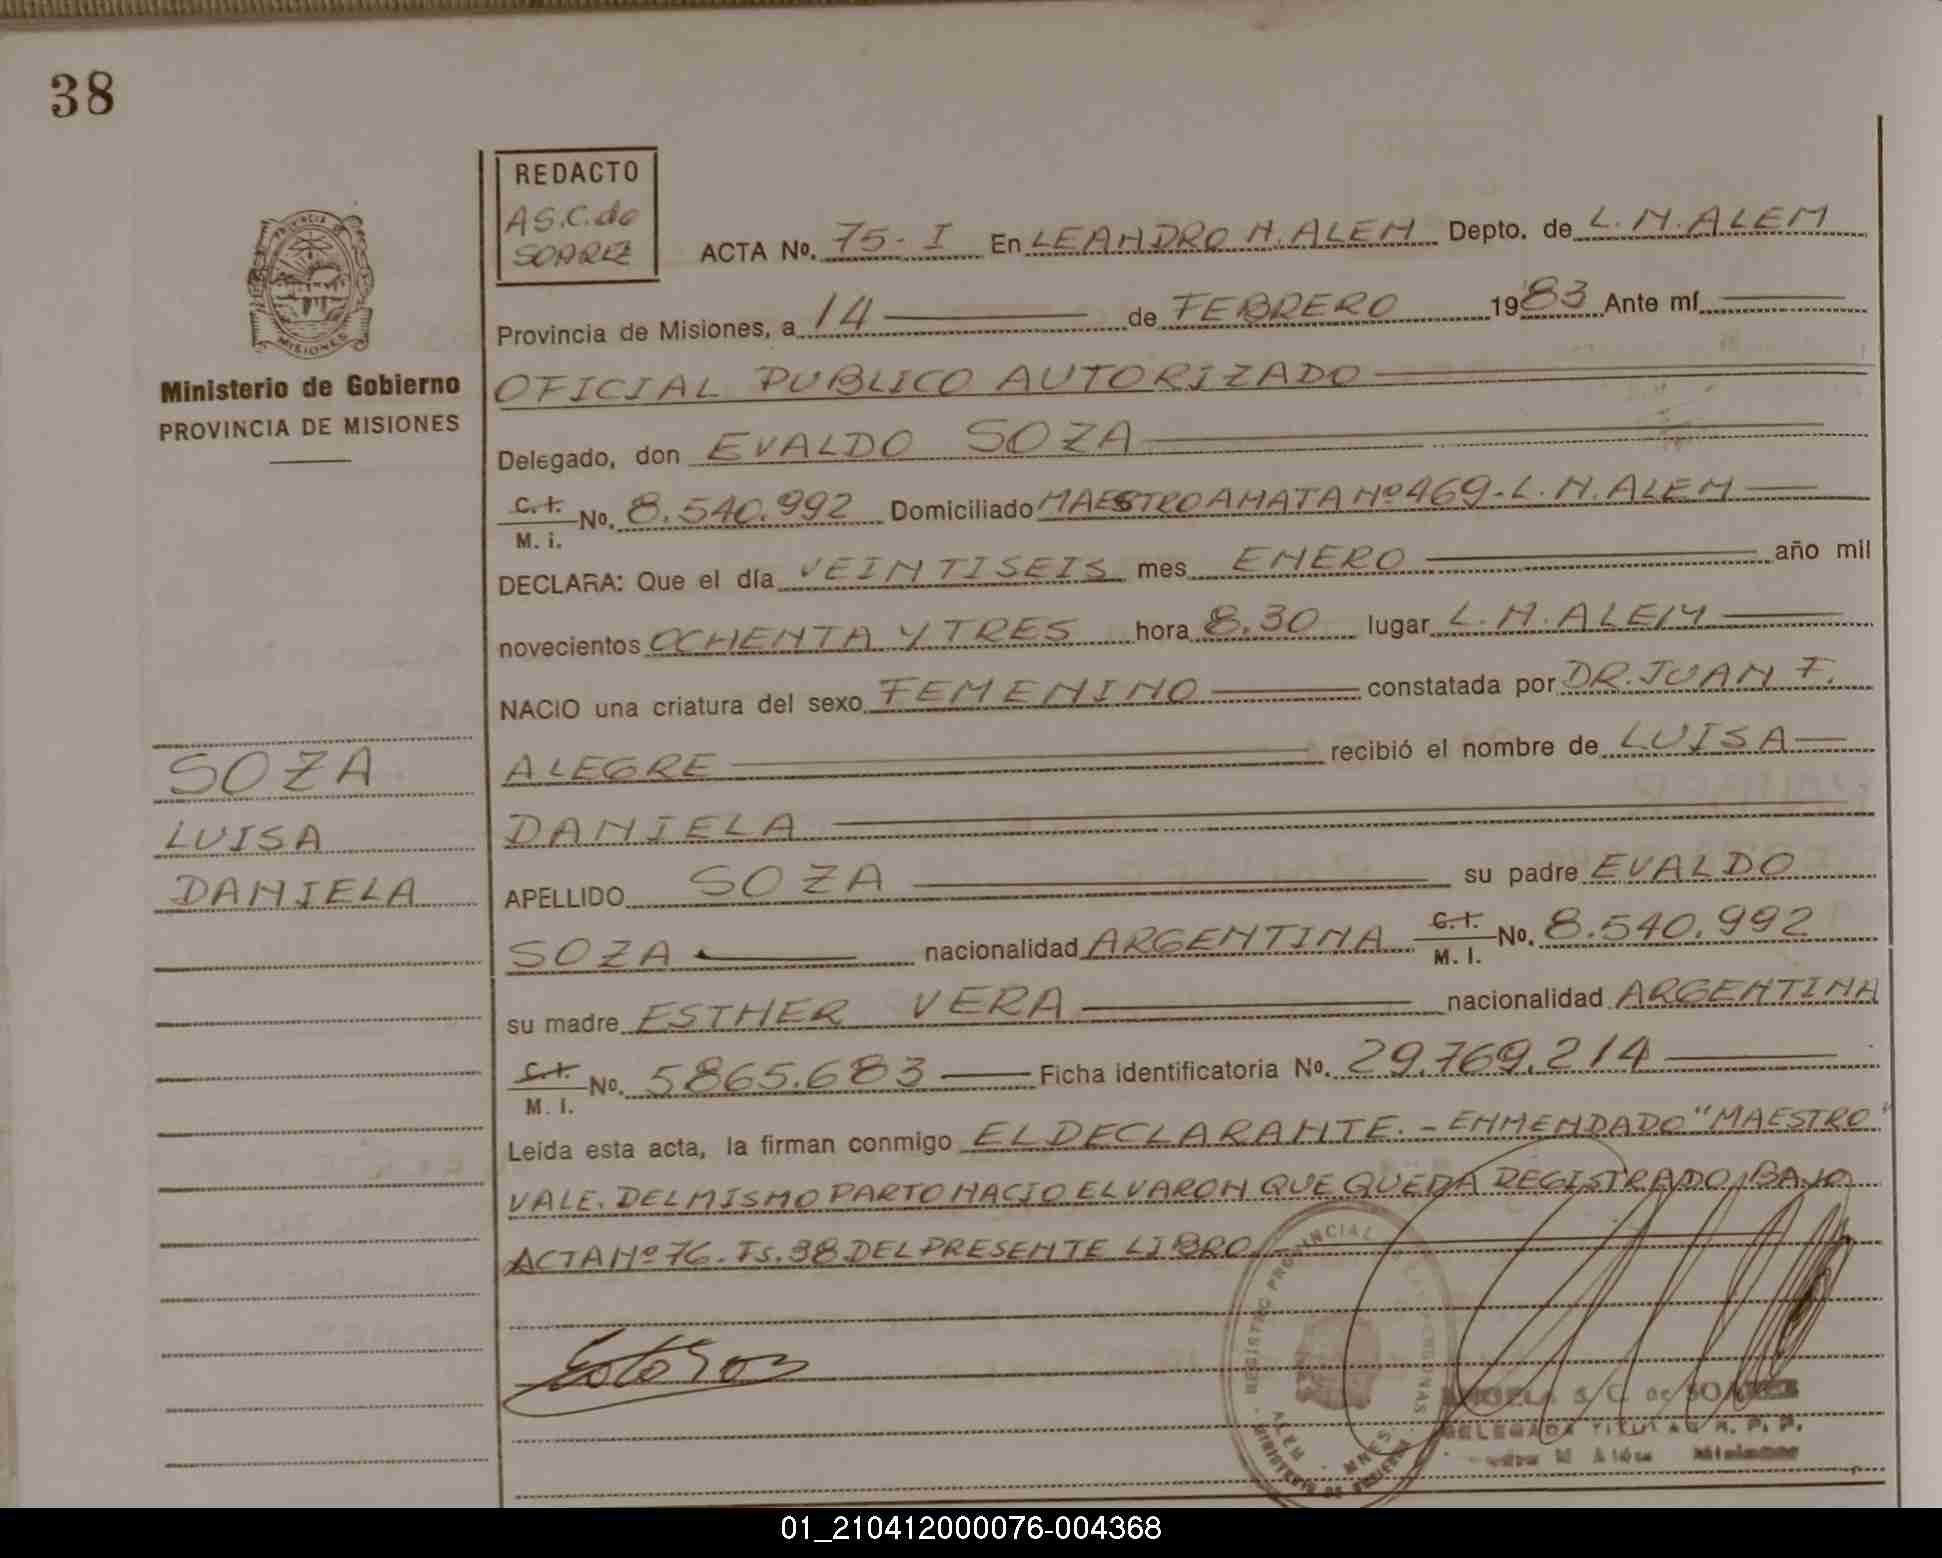 38
REDACTO
A S.C. de
SOAREZ
PROVINCIA DE
MISIONES
Ministerio de Gobierno
PROVINCIA DE MISIONES
SOZA
LUISA
DANIELA
ACTA No. 75- I En LEANDRO N. ALEM Depto. de L. N. ALEM
Provincia de Misiones, a 14 de FEBRERO 1983 Ante mí
OFICIAL PUBLICO AUTORIZADO
Delegado, don EVALDO SOZA
C. I. M. i. No. 8.540.992 Domiciliado MAESTRO AMATA Nº 469-L. N. ALEM
DECLARA: Que el día VEINTISEIS mes ENERO año mil
novecientos OCHENTA Y TRES hora 8.30 lugar L. N. ALEM
NACIO una criatura del sexo FEMENINO constatada por DR. JUAN F.
ALEGRE recibió el nombre de LUISA
DANIELA
APELLIDO SOZA su padre EVALDO
SOZA nacionalidad ARGENTINA C. I. M. I. No. 8.540.992
su madre ESTHER VERA nacionalidad ARGENTINA
C. I. M. I. No. 5865.683 Ficha identificatoria No. 29.769.214
Leida esta acta, la firman conmigo EL DECLARANTE. - ENMENDADO "MAESTRO"
VALE. DEL MISMO PARTO NACIO EL VARON QUE QUEDA REGISTRADO BAJO
ACTA Nº 76. Fs. 38 DEL PRESENTE LIBRO
REGISTRO PROVINCIAL DE LAS PERSONAS
ALEM
MNES
ANGELA S. C. de SOAREZ
DELEGADA TITULAR R. P. P.
01_210412000076-004368